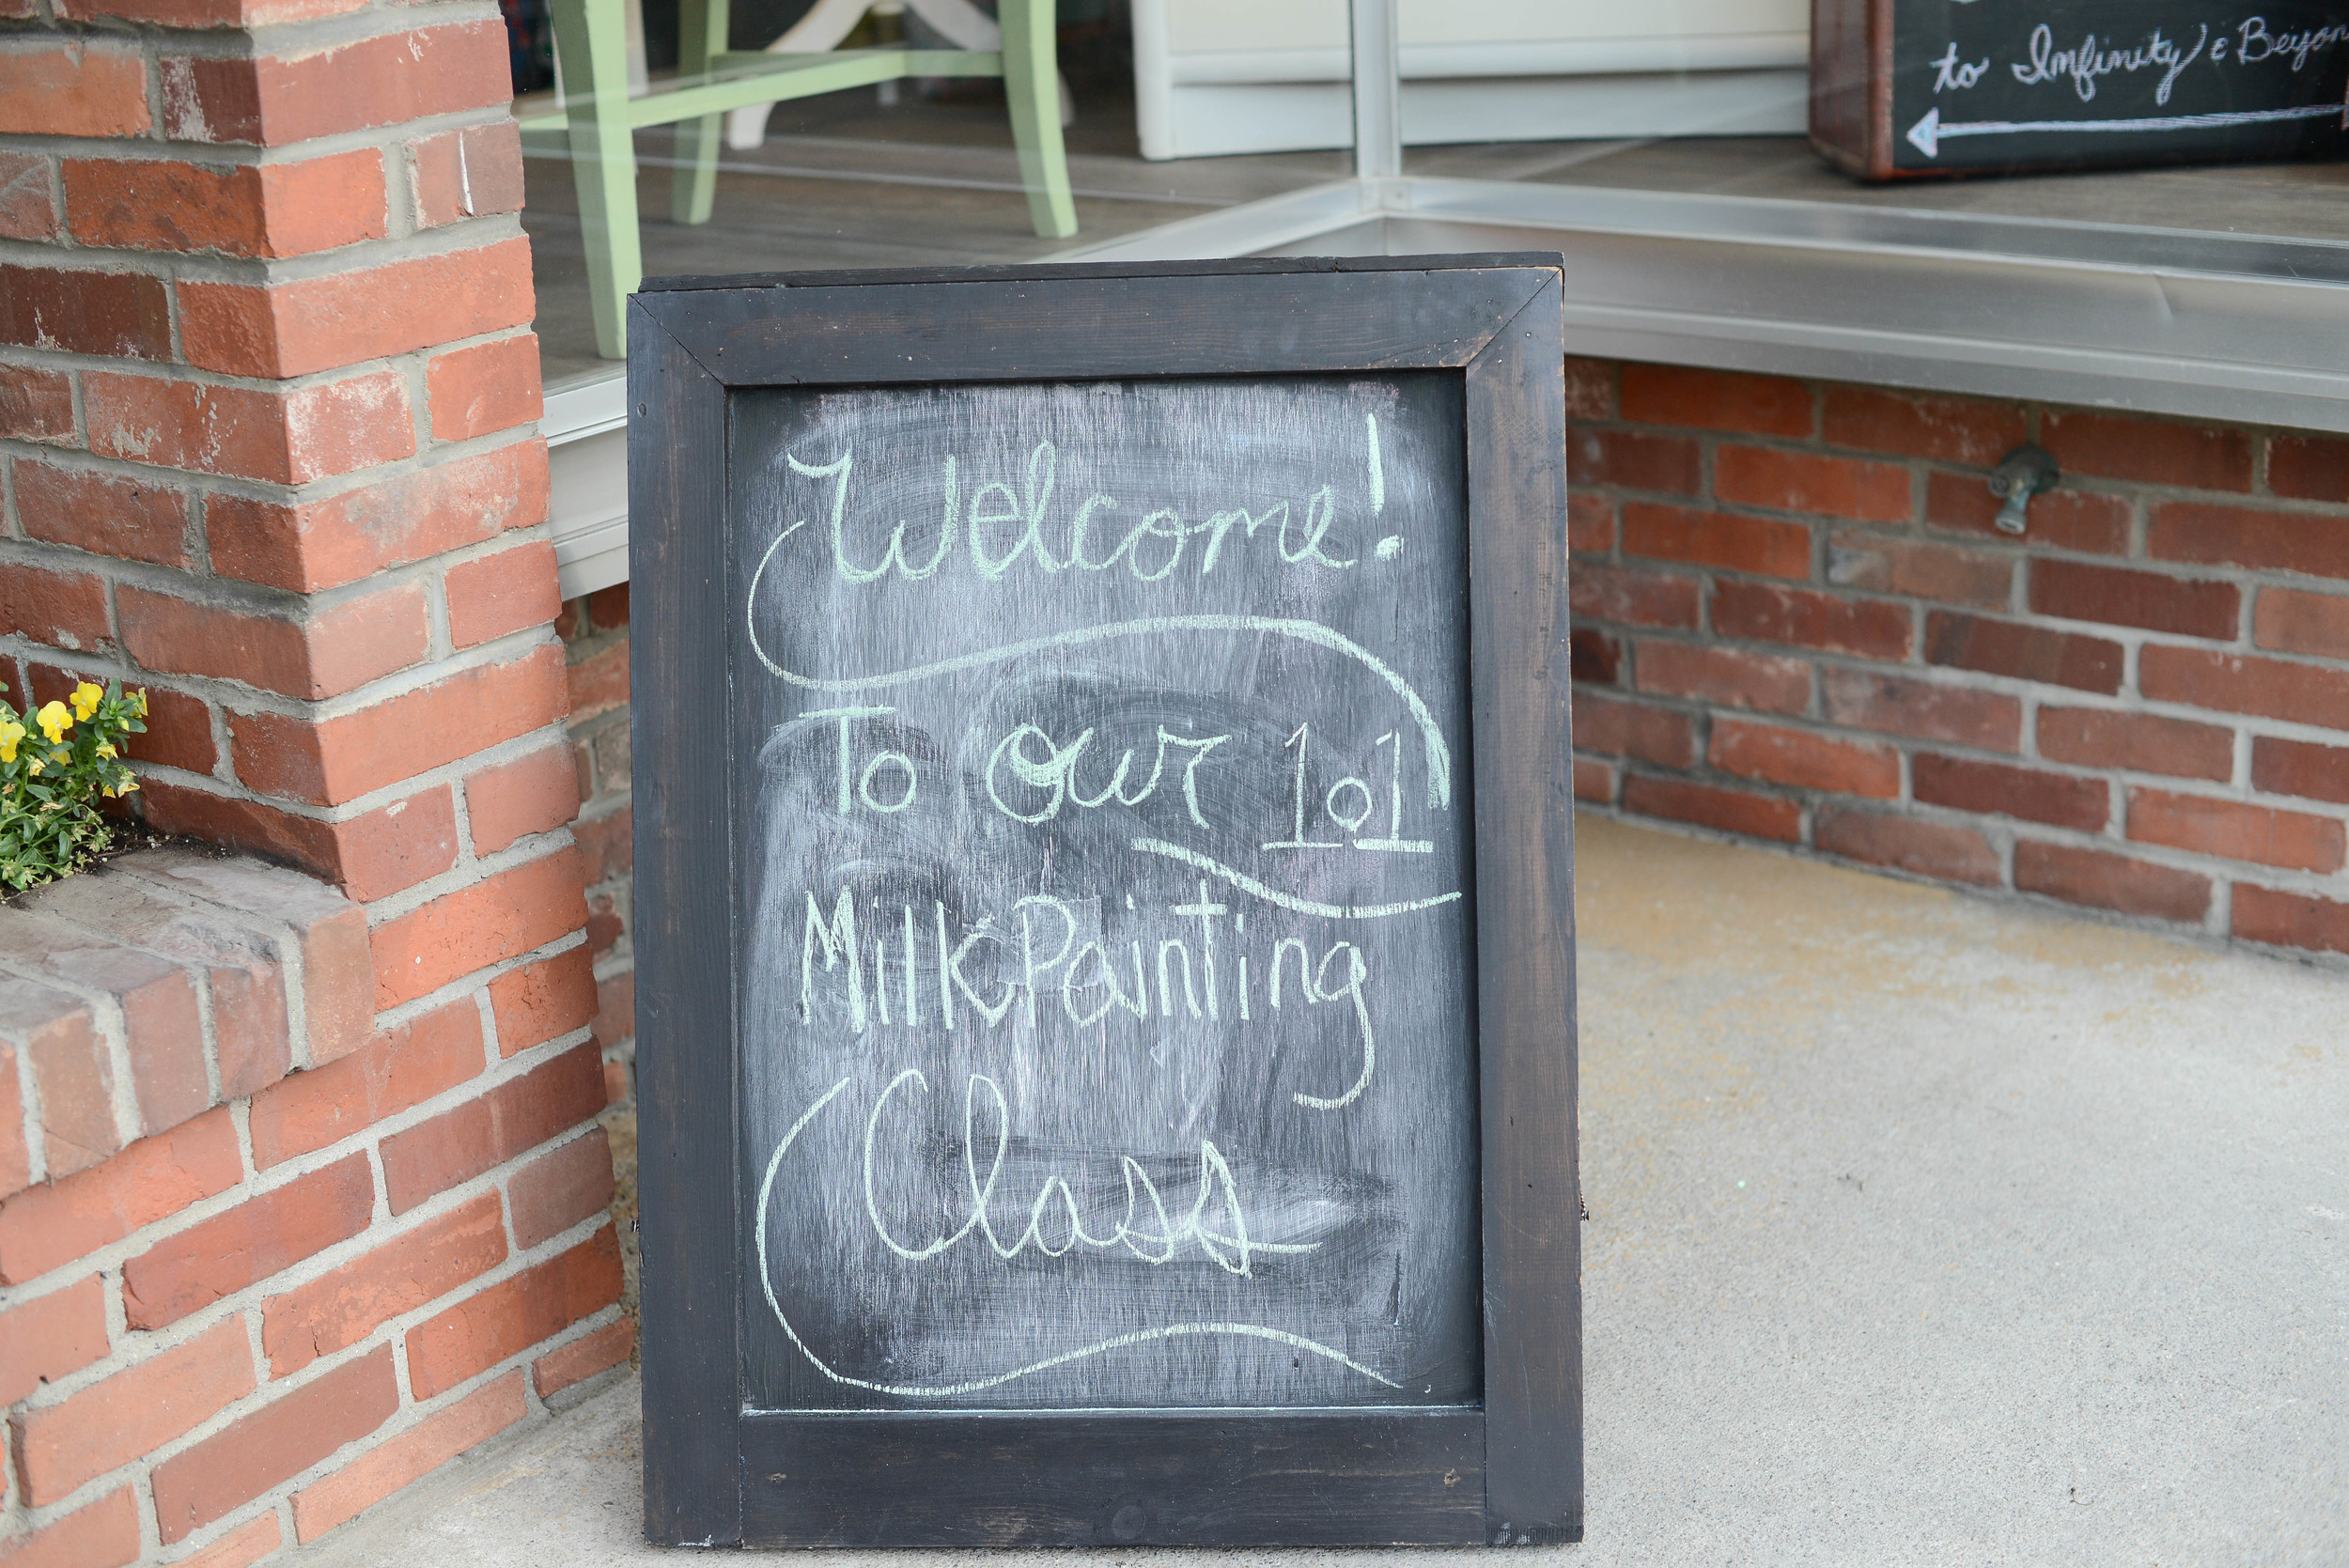 to Infinity & Beyon
Welcome!
To our 101
Milk Painting
Class